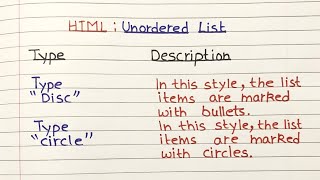 HTML : Unordered List
Type Description
Type In this style, the list
"Disc" items are marked
with bullets.
Type In this style, the list
"circle" items are marked
with circles.